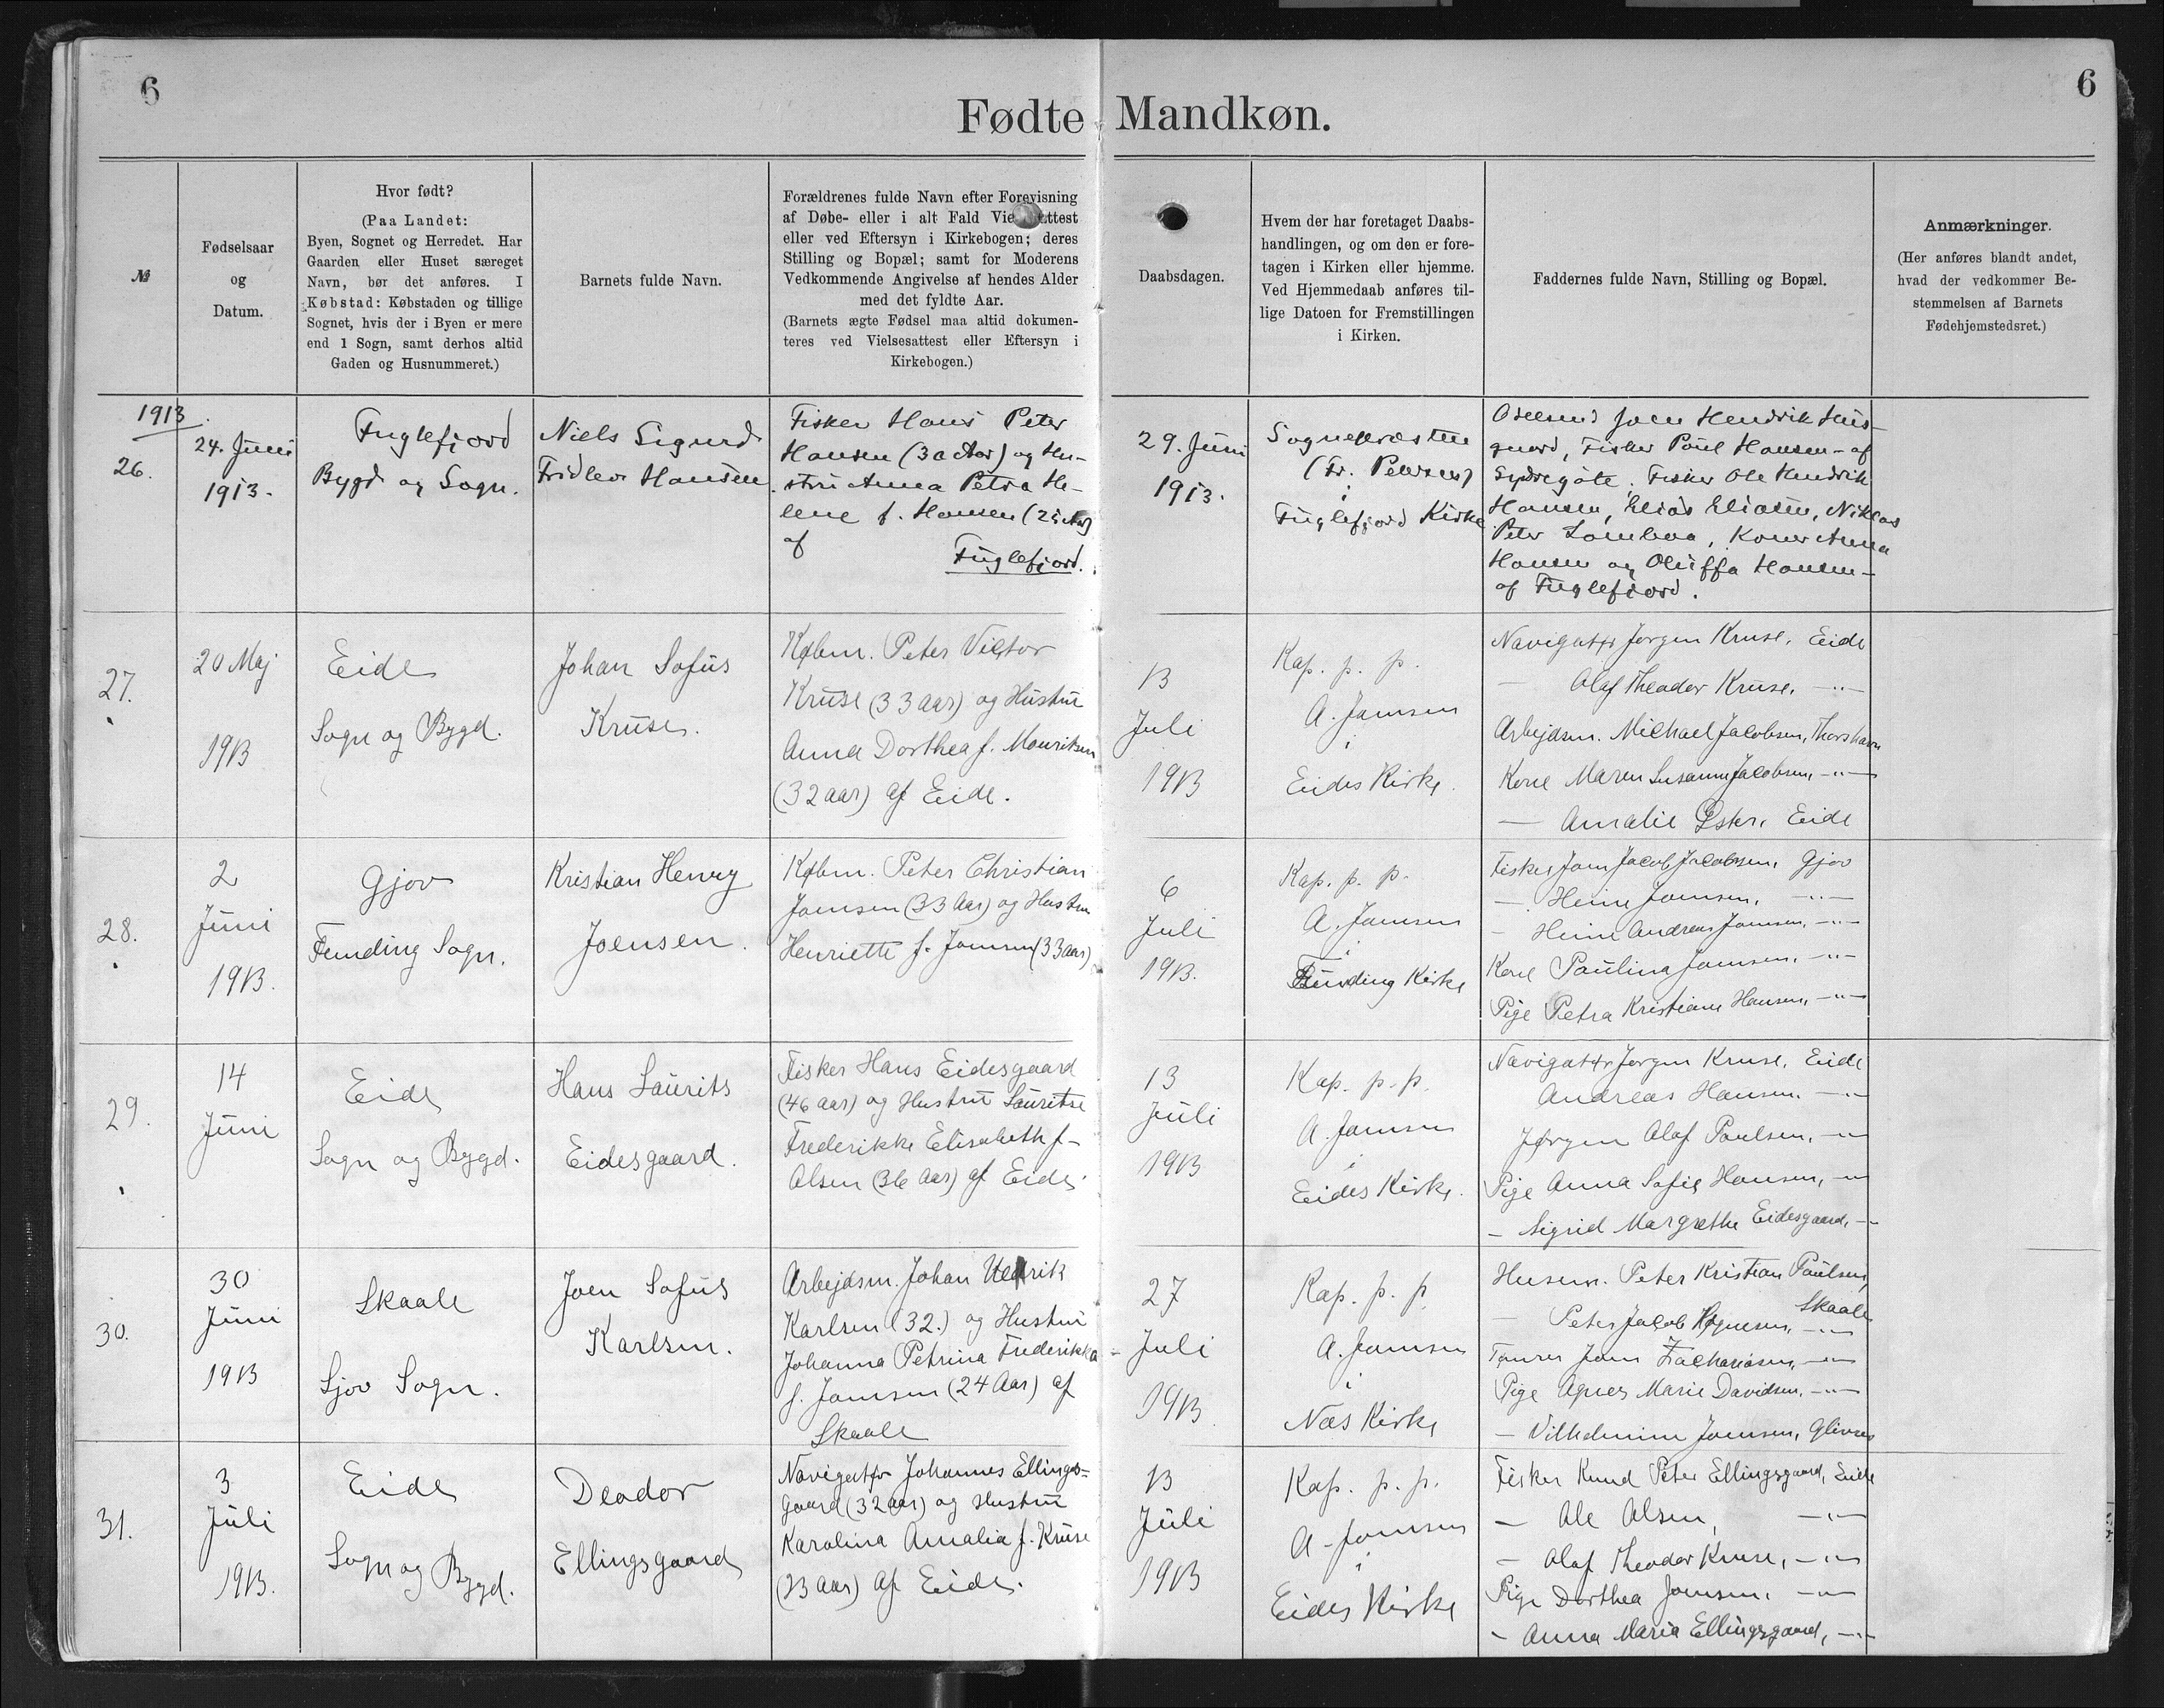 6
6
Fødte Mandkøn.
№
Fødselsaar
og
Datum.
Hvor født?
(Paa Landet:
Byen, Sognet og Herredet. Har
Gaarden eller Huset særeget
Navn, bør det anføres. I
Købstad: Købstaden og tillige
Sognet, hvis der i Byen er mere
end 1 Sogn, samt derhos altid
Gaden og Husnummeret.)
Barnets fulde Navn.
Forældrenes fulde Navn efter Forevisning
af Døbe- eller i alt Fald Vielsesattest
eller ved Eftersyn i Kirkebogen; deres
Stilling og Bopæl; samt for Moderens
Vedkommende Angivelse af hendes Alder
med det fyldte Aar.
(Barnets ægte Fødsel maa altid dokumen-
teres ved Vielsesattest eller Eftersyn i
Kirkebogen.)
Daabsdagen.
Hvem der har foretaget Daabs-
handlingen, og om den er fore-
tagen i Kirken eller hjemme.
Ved Hjemmedaab anføres til-
lige Datoen for Fremstillingen
i Kirken.
Faddernes fulde Navn, Stilling og Bopæl.
Anmærkninger.
(Her anføres blandt andet,
hvad der vedkommer Be-
stemmelsen af Barnets
Fødehjemstedsret.)
1913
26.
24. Juni
1913.
Fuglefjord
Bygd og Sogn.
Niels Sigurd
Fridlev Hansen.
Fisker Hans Peter
Hansen (30 Aar) og Hu-
stru Anna Petra He-
lene f. Hansen
af
Fuglefjord.
29. Juni
1913.
Sognepræsten
(Fr. Petersen)
i
Fuglefjord Kirke
Joen Hendrik Hus-
gaard, Fisker Poul Hansen - af
Sydregöte. Fisker Ole Hendrik
Hansen, Elias Eliasen, Niklas
Peter Kone Anna
Hansen og Oluffa Hansen -
af Fuglefjord.
27.
20 Maj
1913
Eide
Sogn og Bygd.
Johan Sofus
Kruse.
Købm. Peter Victor
Kruse (33 aar) og Hustru
Anna Dorthea f. Mouritsen
(32 aar) af Eide.
13
Juli
1913
Kap. p. p.
A. Joensen
i
Eides Kirke.
Navigatør Jørgen Kruse, Eide
— Olaf Theodor Kruse, -"-
Arbejdsm. Michael Jacobsen, Thorshavn
Kone Maren Susanne Jacobsen, -"-
— Amalie Øster, Eide
28.
2
Juni
1913.
Gjov
Funding Sogn.
Kristian Henry
Joensen.
Købm. Peter Christian
Joensen (33 Aar) og Hustru
Henriette f. Joensen (33 aar)
6
Juli
1913.
Kap. p. p.
A. Joensen
i
Funding Kirke
Fisker Joen Jacob Jacobsen, Gjov
— Heine Joensen, -"-
— Heine Andreas Joensen, -"-
Kone Paulina Joensen, -"-
Pige Petra Kristiane Hansen, -"-
29.
14
Juni
Eide
Sogn og Bygd.
Hans Laurits
Eidesgaard.
Fisker Hans Eidesgaard
(46 aar) og Hustru Lauritse
Frederikke Elisabeth f.
Olsen (36 Aar) af Eide.
13
Juli
1913
Kap. p. p.
A. Joensen
i
Eides Kirke.
Navigatør Jørgen Kruse, Eide
Andreas Hansen, -"-
Jørgen Olaf Poulsen, -"-
Pige Anna Sofie Hansen, -"-
- Sigrid Margrethe Eidesgaard, -"-
30.
30
Juni
1913
Skaale
Sjov Sogn.
Joen Sofus
Karlsen.
Arbejdsm. Johan
Karlsen (32.) og Hustru
Johanna Petrina Frederikka
f. Joensen (24 Aar) af
Skaale
27
Juli
1913
Kap. p. p.
A. Joensen
i
Næs Kirke
Husem. Peter Kristian Paulsen,
Skaale
— Peter Jacob Høgnesen, -"-
Tømrer Joen Zachariasen, -"-
Pige Agnes Marie Davidsen, -"-
— Vilhelmine Joensen, Glivres
31.
3
Juli
1913.
Eide
Sogn og Bygd.
Deodor
Ellingsgaard
Navigatør Johannes Ellings-
gaard (32 aar) og Hustru
Karolina Amalia f. Kruse
(23 aar) af Eide.
13
Juli
1913
Kap. p. p.
A. Joensen
i
Eides Kirke
Fisker Knud Peter Ellingsgaard, Eide
— Ole Olsen, -"-
— Olaf Theodor Kruse, -"-
Pige Dorthea Joensen, -"-
- Anna Maria Ellingsgaard, -"-